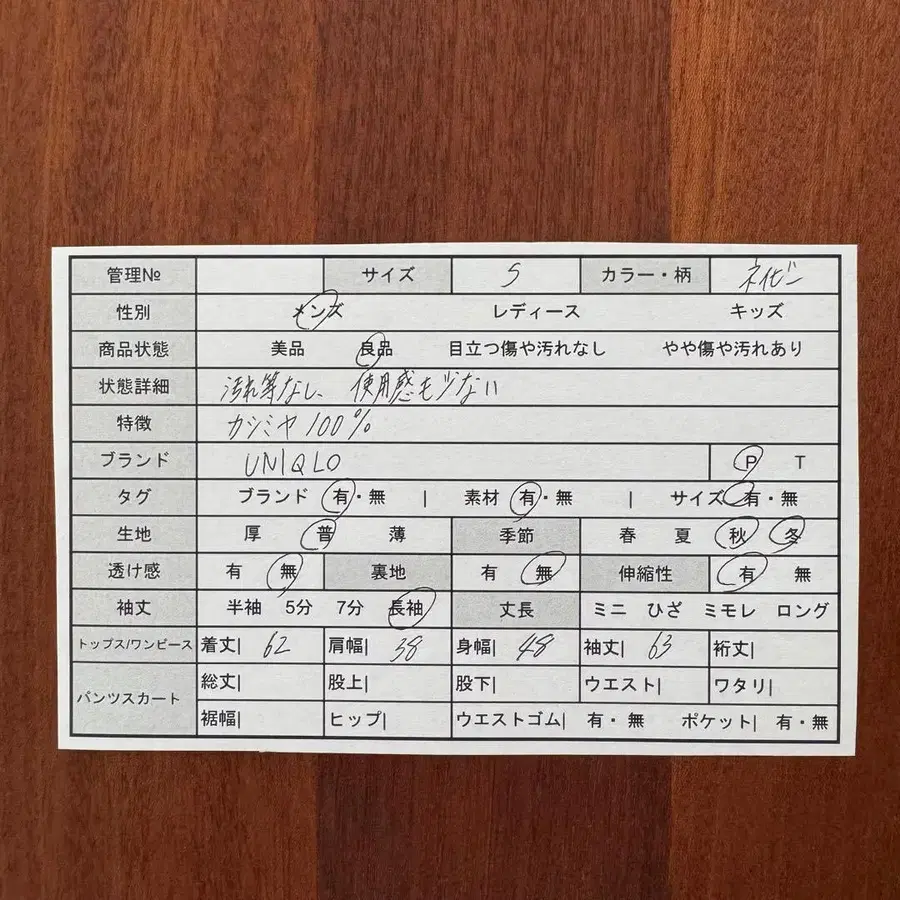 管理№ サイズ S カラー・柄 ネイビー
性別 メンズ レディース キッズ
商品状態 美品 良品 目立つ傷や汚れなし やや傷や汚れあり
状態詳細 汚れ等なし、使用感も少ない
特徴 カシミヤ100%
ブランド UNIQLO P T
タグ ブランド 有・無 | 素材 有・無 | サイズ 有・無
生地 厚 普 薄 季節 春 夏 秋 冬
透け感 有 無 裏地 有 無 伸縮性 有 無
袖丈 半袖 5分 7分 長袖 丈長 ミニ ひざ ミモレ ロング
トップス/ワンピース 着丈| 62 肩幅| 38 身幅| 48 袖丈| 63 裄丈|
パンツスカート 総丈| 股上| 股下| ウエスト| ワタリ|
裾幅| ヒップ| ウエストゴム| 有・無 ポケット| 有・無